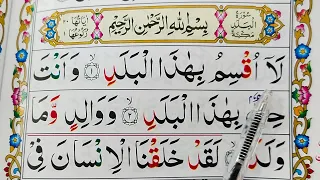 سُورَةُ الْبَلَدِ مَكِّيَّةٌ
بِسْمِ اللهِ الرَّحْمٰنِ الرَّحِيْمِ
لَاۤ اُقْسِمُ بِهٰذَا الْبَلَدِ ۝۱ وَاَنْتَ
حِلٌّۢ بِهٰذَا الْبَلَدِ ۝۲ وَوَالِدٍ وَّمَا
وَلَدَ ۝۳ لَقَدْ خَلَقْنَا الْاِنْسَانَ فِيْ